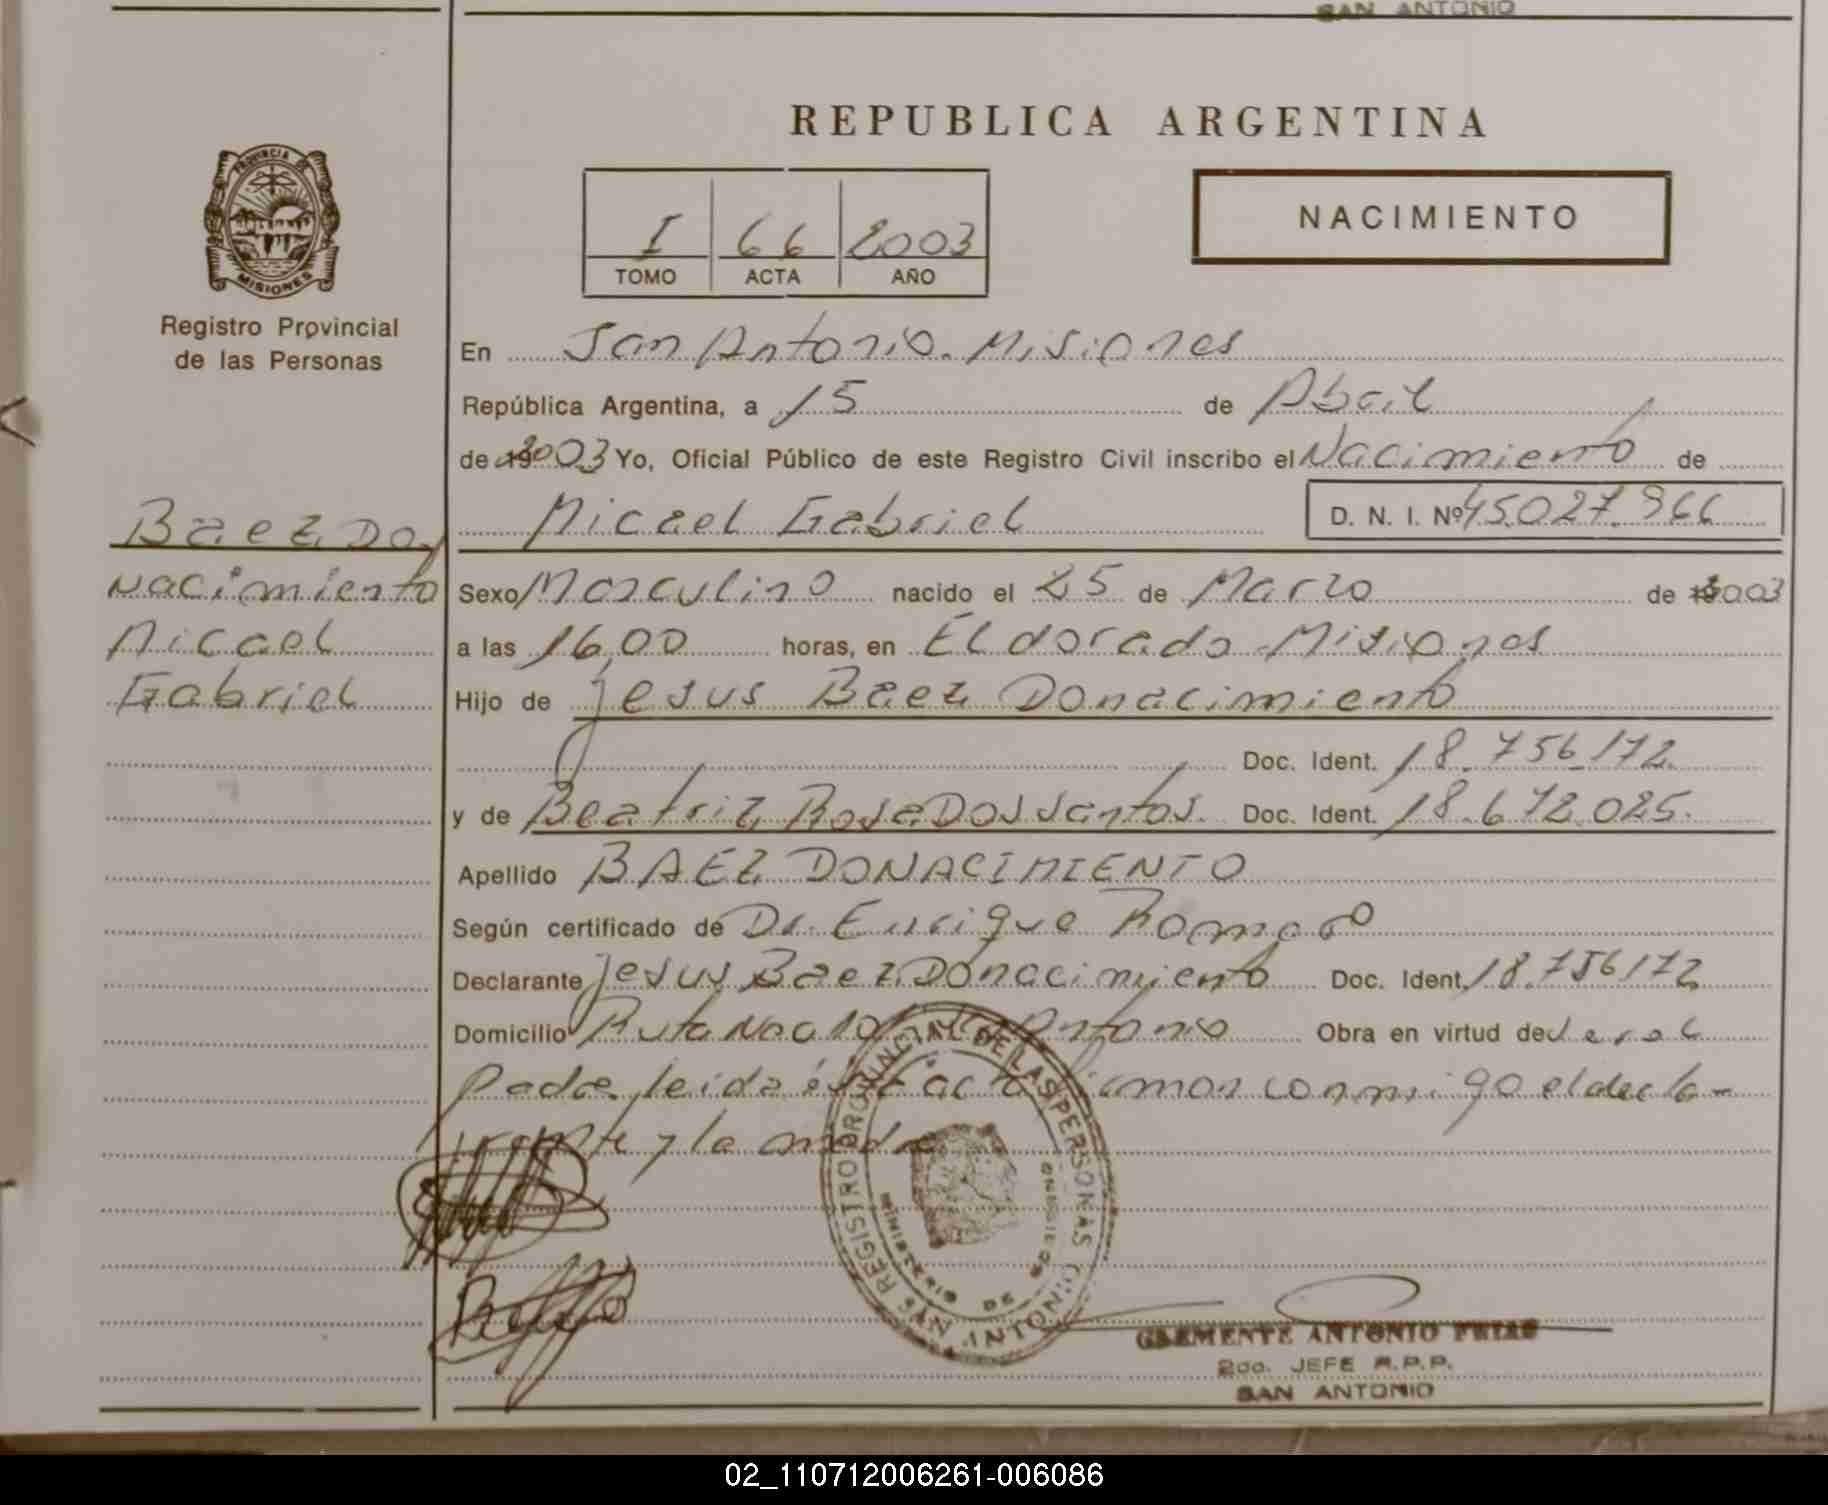 SAN ANTONIO
REPUBLICA ARGENTINA
PROVINCIA DE
MISIONES
Registro Provincial
de las Personas
I 66 2003
TOMO ACTA AÑO
NACIMIENTO
En San Antonio. Misiones
República Argentina, a 15 de Abril
de 2003 Yo, Oficial Público de este Registro Civil inscribo el Nacimiento de
Micael Gabriel D. N. I. Nº 45.027.966
Baez Do
nacimiento
Micael
Gabriel
Sexo Masculino nacido el 25 de Marzo de 2003
a las 16,00 horas, en Eldorado - Misiones
Hijo de Jesus Baez Donacimiento
Doc. Ident. 18.756.172
y de Beatriz Rosa Dos Santos. Doc. Ident. 18.672.025.
Apellido BAEZ DONACIMIENTO
Según certificado de Dr. Enrique Romero
Declarante Jesus Baez Donacimiento Doc. Ident. 18.756172
Domicilio Ruta Nac 101 Antonio Obra en virtud de ser el
Padre leida esta acta firman conmigo el decla-
rante y la madre
REGISTRO PROVINCIAL DE LAS PERSONAS
MINISTERIO DE GOBIERNO
SAN ANTONIO
CLEMENTE ANTONIO FRIAS
2do. JEFE R.P.P.
SAN ANTONIO
02_110712006261-006086